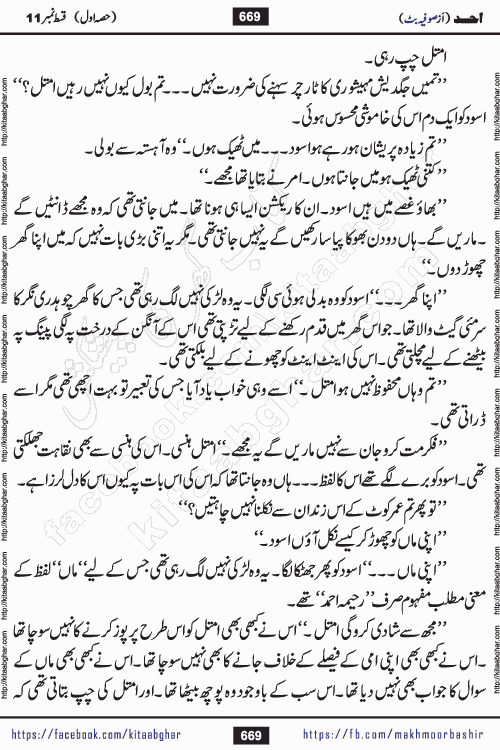 احد (از صوفیہ بٹ) 669 (حصہ اول) قسط نمبر 11
امتل چپ رہی۔
”تمہیں جگدیش مہیشوری کا ٹارچر سہنے کی ضرورت نہیں۔۔۔تم بول کیوں نہیں رہیں امتل؟“
اسود کو ایک دم اس کی خاموشی محسوس ہوئی۔
”تم زیادہ پریشان ہو رہے ہو اسود۔۔۔میں ٹھیک ہوں۔“ وہ آہستہ سے بولی۔
”کتنی ٹھیک ہو میں جانتا ہوں۔ امر نے بتایا تھا مجھے۔“
”بھاؤ غصے میں ہیں اسود۔ ان کا ری ایکشن ایسا ہی ہونا تھا۔ میں جانتی تھی کہ وہ مجھے ڈانٹیں گے
۔ماریں گے۔ ہاں دو دن بھوکا پیاسا رکھیں گے یہ نہیں جانتی تھی۔ مگر یہ اتنی بڑی بات نہیں کہ میں اپنا گھر
چھوڑ دوں۔“
”اپنا گھر۔۔۔“ اسود کو وہ بدلی ہوئی سی لگی۔ یہ وہ لڑکی نہیں لگ رہی تھی جس کا گھر چوہدری نگر کا
سرمئی گیٹ والا تھا۔ جو اس گھر میں قدم رکھنے کے لیے تڑپتی تھی اس کے آنگن کے درخت پہ لگی پینگ پہ
بیٹھنے کے لیے مچلتی تھی۔ اس کی اینٹ اینٹ کو چھونے کے لیے بلکتی تھی۔
”تم وہاں محفوظ نہیں ہو امتل۔“ اسے وہی خواب یاد آیا جس کی تعبیر تو بہت اچھی تھی مگر اسے
ڈراتی تھی۔
”فکر مت کرو جان سے نہیں ماریں گے یہ مجھے۔“ امتل ہنسی۔ اس کی ہنسی سے بھی نقاہت جھلکتی
تھی۔ اسود کو برے لگے تھے اس کا لفظ۔۔۔ہاں وہ جانتا تھا کہ اس کی اس بات پہ کیوں اس کا دل لرزا ہے۔
”تو پھر تم عمر کوٹ کے اس زندان سے نکلنا نہیں چاہتیں؟“
”اپنی ماں کو چھوڑ کر کیسے نکل آؤں اسود۔“
”اپنی ماں۔۔۔“ اسود کو پھر جھٹکا لگا۔ یہ وہ لڑکی نہیں لگ رہی تھی جس کے لیے ”ماں“ لفظ کے
معنی مطلب مفہوم صرف ”رحیمہ احمد“ تھے۔
”مجھ سے شادی کرو گی امتل۔“ اس نے کبھی بھی امتل کو اس طرح پرپوز کرنے کا نہیں سوچا تھا
۔اس نے کبھی بھی اپنی امی کے فیصلے کے خلاف جانے کا بھی نہیں سوچا تھا۔ اس نے کبھی بھی ماں کے
سوال کا جواب بھی نہیں دیا تھا۔ اس سب کے باوجود وہ پوچھ بیٹھا تھا۔ اور امتل کی چپ بتاتی تھی کہ
https://facebook.com/kitaabghar 669 https://fb.com/makhmoorbashir
http://kitaabghar.com
facebook.com/kitaabghar
kitaabghar.com